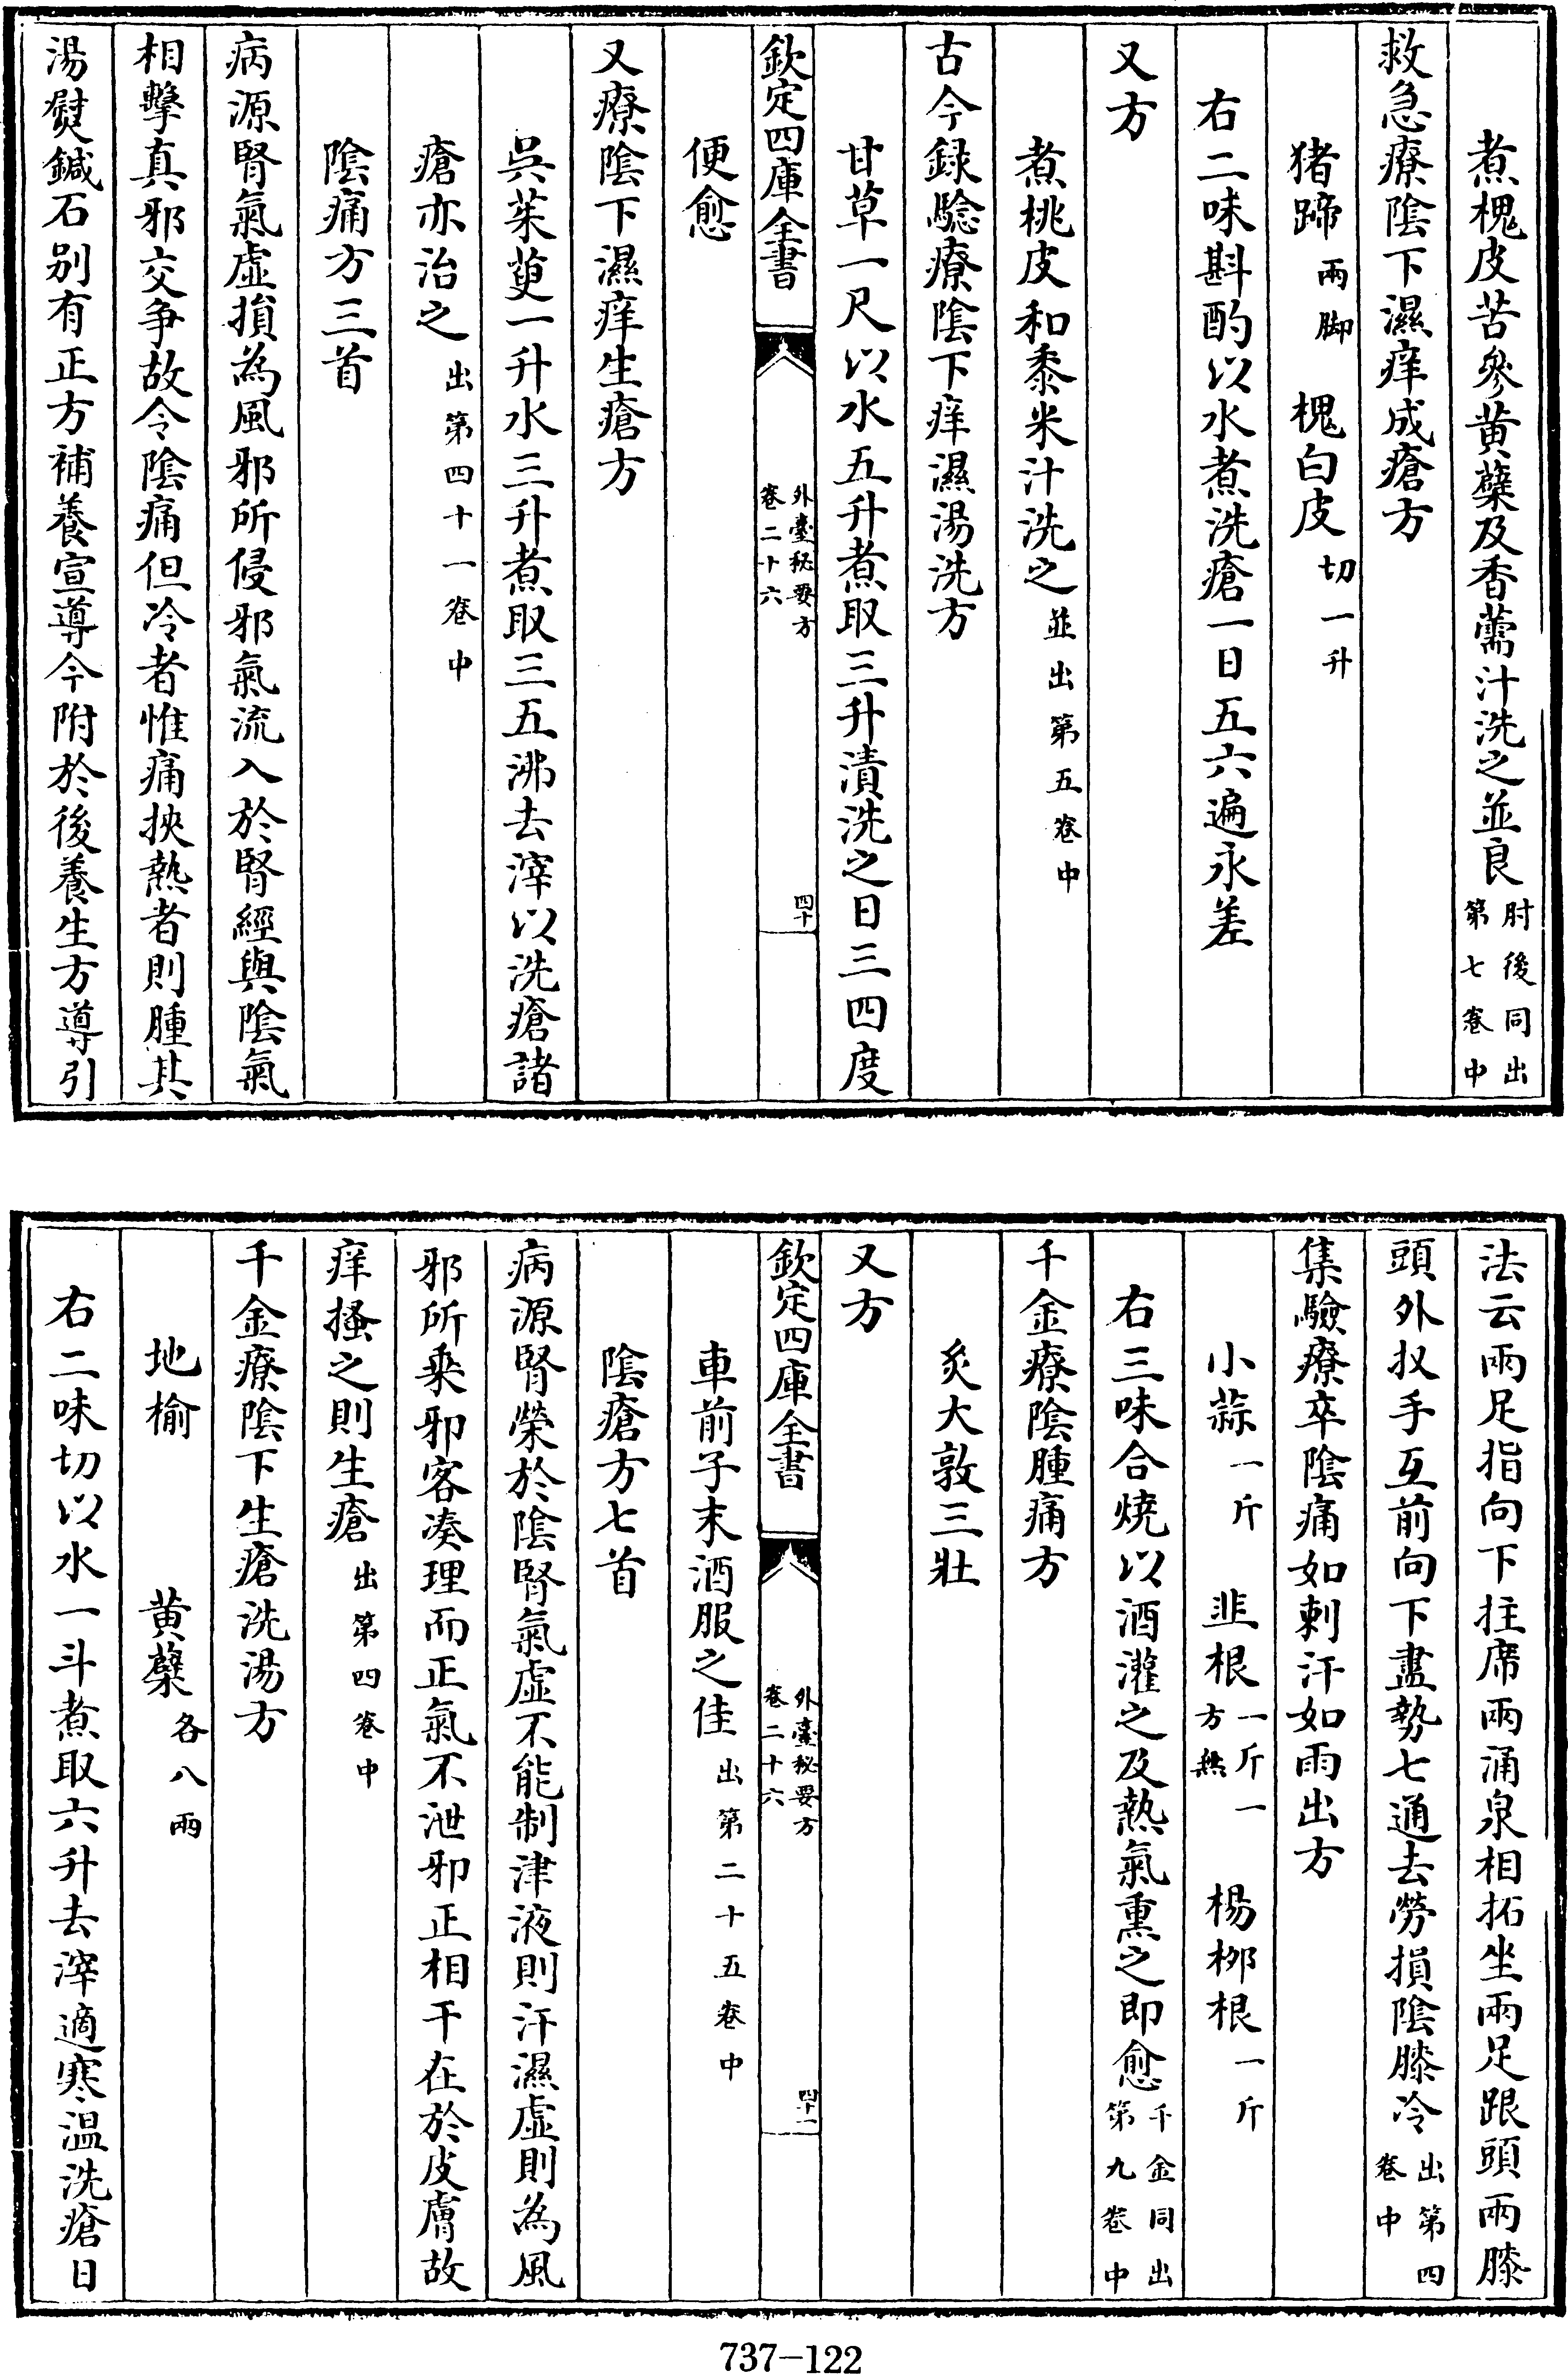 煮槐皮苦參黄蘗及香薷汁洗之並良肘後同出第七卷中
救急療陰下濕痒成瘡方
猪蹄兩脚　槐白皮切一升
右二味斟酌以水煮洗瘡一日五六遍永差
又方
煮桃皮和黍米汁洗之並出第五卷中
古今録驗療陰下痒濕湯洗方
甘草一尺以水五升煮取三升漬洗之日三四度
欽定四庫全書　外臺秘要方卷二十六　四十
便愈
又療陰下濕痒生瘡方
吳茱萸一升水三升煮取三五沸去滓以洗瘡諸
瘡亦治之出第四十一卷中
陰痛方三首
病源腎氣虛損為風邪所侵邪氣流入於腎經與陰氣
相擊真邪交争故令陰痛但冷者惟痛挾熱者則腫其
湯熨鍼石别有正方補養宣導今附於後養生方導引
法云兩足指向下拄席兩涌泉相拓坐兩足跟頭兩膝
頭外扠手互前向下盡勢七通去勞損陰膝冷出第四卷中
集驗療卒陰痛如刺汗如雨出方
小蒜一斤　韭根一斤一方無　楊栁根一斤
右三味合燒以酒灌之及熱氣熏之即愈千金同出第九卷中
千金療陰腫痛方
炙大敦三壯
又方
欽定四庫全書　外臺秘要方卷二十六　四十一
車前子末酒服之佳出第二十五卷中
陰瘡方七首
病源腎榮於陰腎氣虛不能制津液則汗濕虛則為風
邪所乘邪客凑理而正氣不泄邪正相干在於皮膚故
痒搔之則生瘡出第四卷中
千金療陰下生瘡洗湯方
地榆　黄蘗各八兩
右二味切以水一斗煮取六升去滓適寒温洗瘡日
737-122